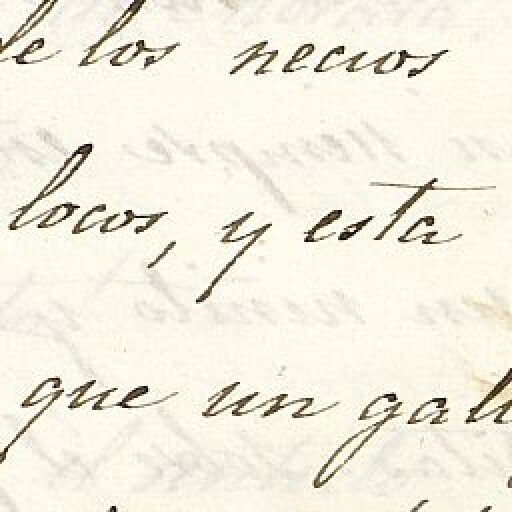 de los necios
locos, y esta
que un gal